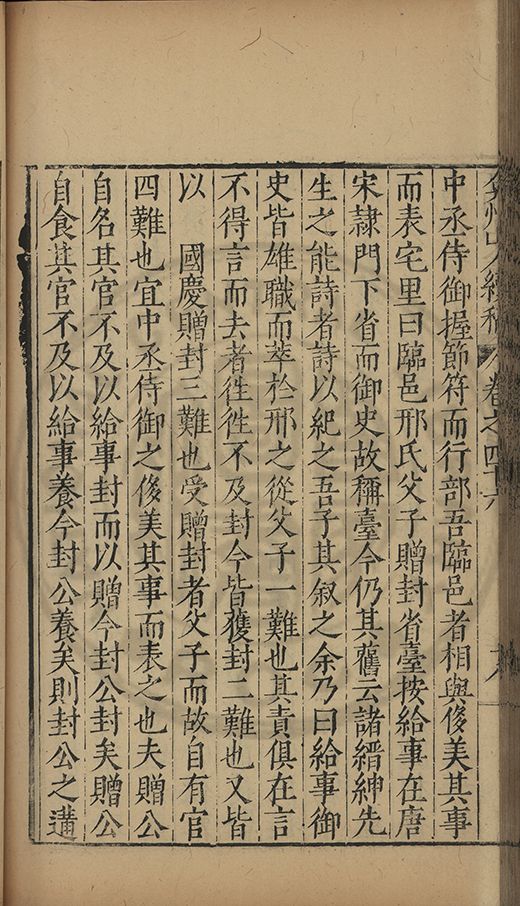 弇州山人續稿 卷之四十六 十八
中丞侍御握節符而行部吾臨邑者相與侈美其事
而表宅里曰臨邑邢氏父子贈封省臺按給事在唐
宋隷門下省而御史故稱臺今仍其舊云諸縉紳先
生之能詩者詩以紀之吾子其叙之余乃曰給事御
史皆雄職而萃於邢之從父子一難也其責俱在言
不得言而去者徃徃不及封今皆獲封二難也又皆
以 國慶贈封三難也受贈封者父子而故自有官
四難也宜中丞侍御之侈美其事而表之也夫贈公
自名其官不及以給事封而以贈今封公封矣贈公
自食其官不及以給事養今封公養矣則封公之遘